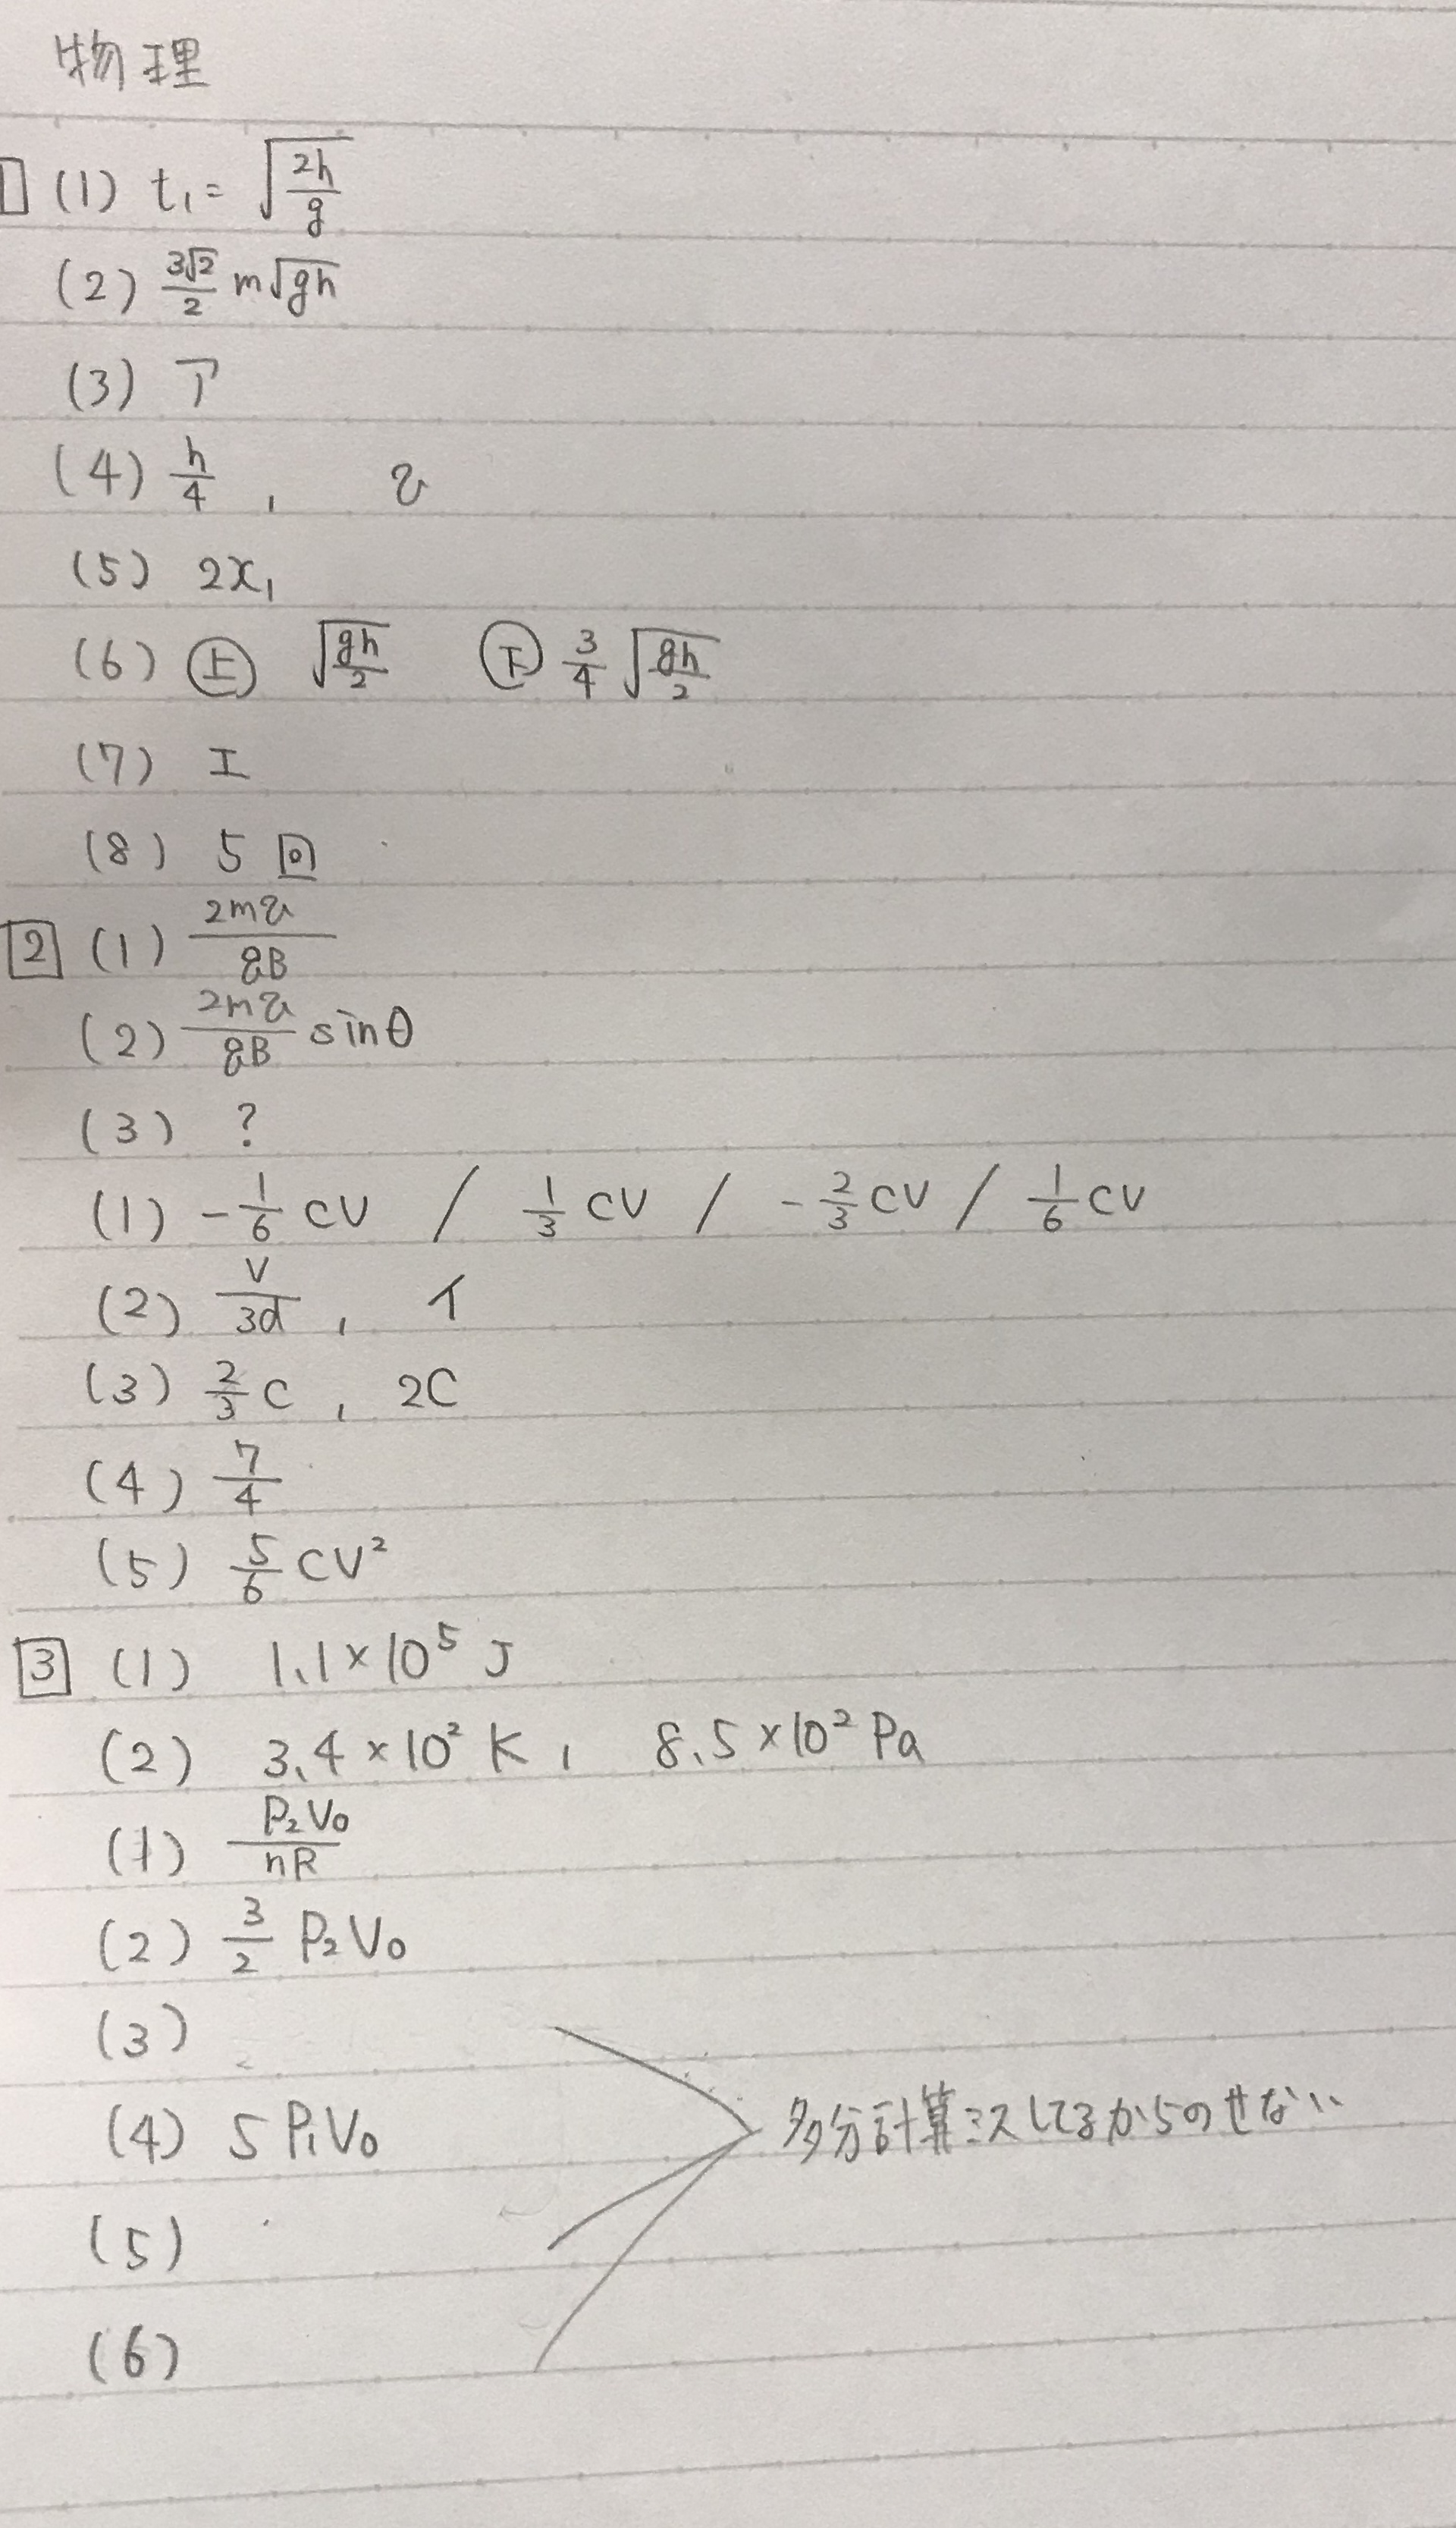 物理
1 (1) t₁= √(2h/g)
(2) 3√2/2 m√gh
(3) ア
(4) h/4 , v
(5) 2x₁
(6) 上 √(gh/2) 下 3/4 √(gh/2)
(7) エ
(8) 5回
2 (1) 2mv/qB
(2) 2mv/qB sinθ
(3) ?
(1) -1/6 CV / 1/3 CV / -2/3 CV / 1/6 CV
(2) V/3d , イ
(3) 2/3 C , 2C
(4) 7/4
(5) 5/6 CV²
3 (1) 1.1×10⁵ J
(2) 3.4×10² K , 8.5×10² Pa
(1) P₂V₀/nR
(2) 3/2 P₂V₀
(3)
(4) 5P₁V₀ 多分計算ミスしてるからのせない
(5)
(6)